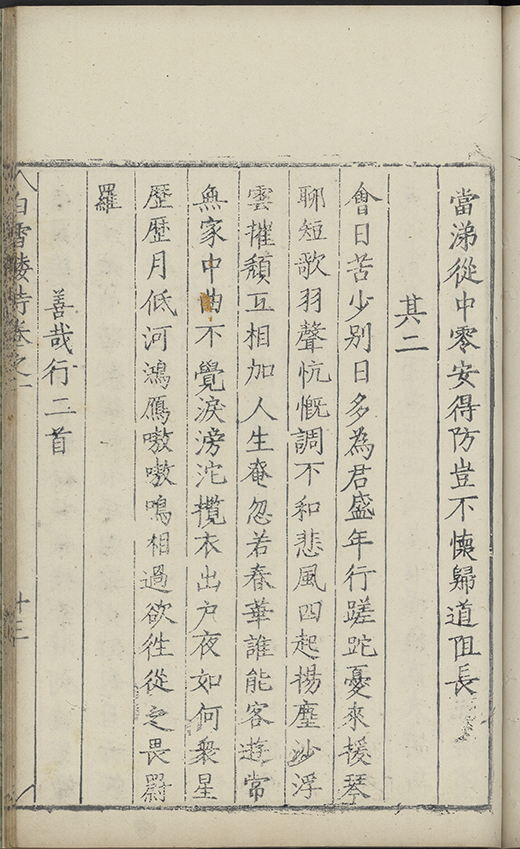 當涕從中零安得防豈不懷歸道阻長
其二
會日苦少别日多為君盛年行蹉跎憂來援琴
聊短歌羽聲忼慨調不和悲風四起揚塵沙浮
雲摧頹互相加人生奄忽若春華誰能客遊常
無家中曲不覺淚滂沱攬衣出戶夜如何衆星
歷歷月低河鴻鴈嗷嗷鳴相過欲徃從之畏罻
羅
善哉行二首
白雪樓詩卷之一
十三